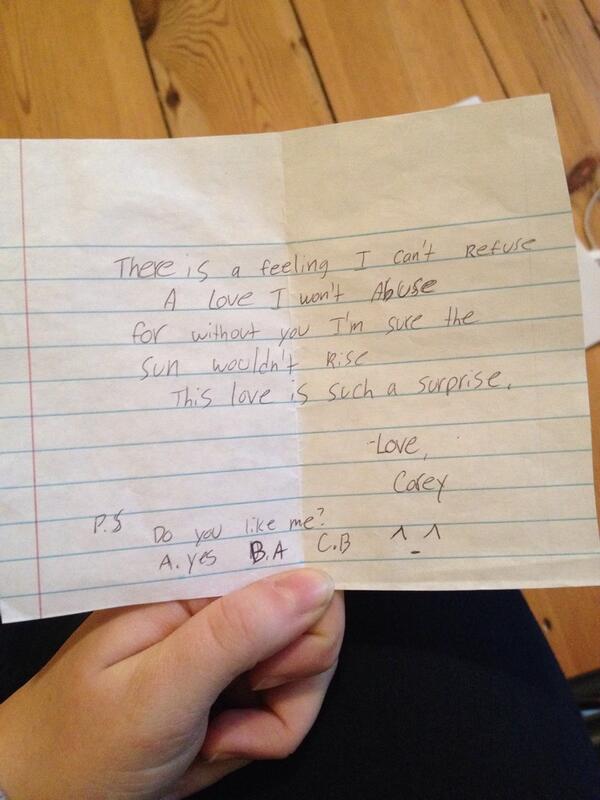 There is a feeling I can't Refuse
A Love I won't Abuse
for without you I'm sure the
sun wouldn't Rise
This love is such a surprise.
-Love,
Corey
P.S Do you like me?
A. yes B. A C. B ^_^